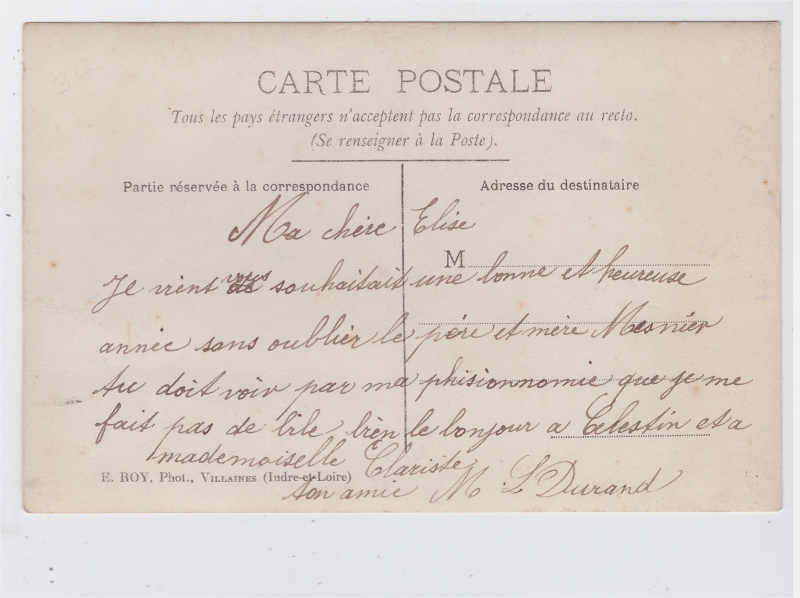 CARTE POSTALE
Tous les pays étrangers n'acceptent pas la correspondance au recto.
(Se renseigner à la Poste).
Partie réservée à la correspondance
Adresse du destinataire
Ma chère Elise
M
Je vient vous souhaitait une bonne et heureuse
année sans oublier le père et mère Mesnier
tu doit voir par ma phisionnomie que je me
fait pas de bile bien le bonjour a Celestin et a
mademoiselle Clariste
E. ROY, Phot., VILLAINES (Indre-et-Loire)
ton amie M L Durand